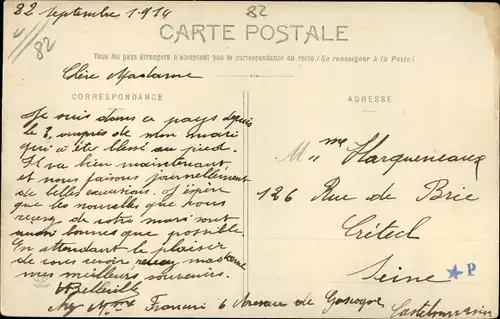 22 Septembre 1914
82
82
CARTE POSTALE
Tous les pays étrangers n'acceptent pas la correspondance au recto (Se renseigner à la Poste)
Chère Madame
CORRESPONDANCE
ADRESSE
Je suis dans ce pays depuis
le 3, auprès de mon mari
qui a été blessé au pied.
Il va bien maintenant,
et nous faisons journellement
de belles excursions. J'espère
que les nouvelles que vous
recevez de votre mari sont
aussi bonnes que possible.
En attendant le plaisir
de vous revoir recevez madame
mes meilleurs souvenirs.
Belleville
Mme Harqueneaux
126 Rue de Brie
Créteil
Seine
P
Mme Francari 6 Avenue de Gascogne Castelsarrasin